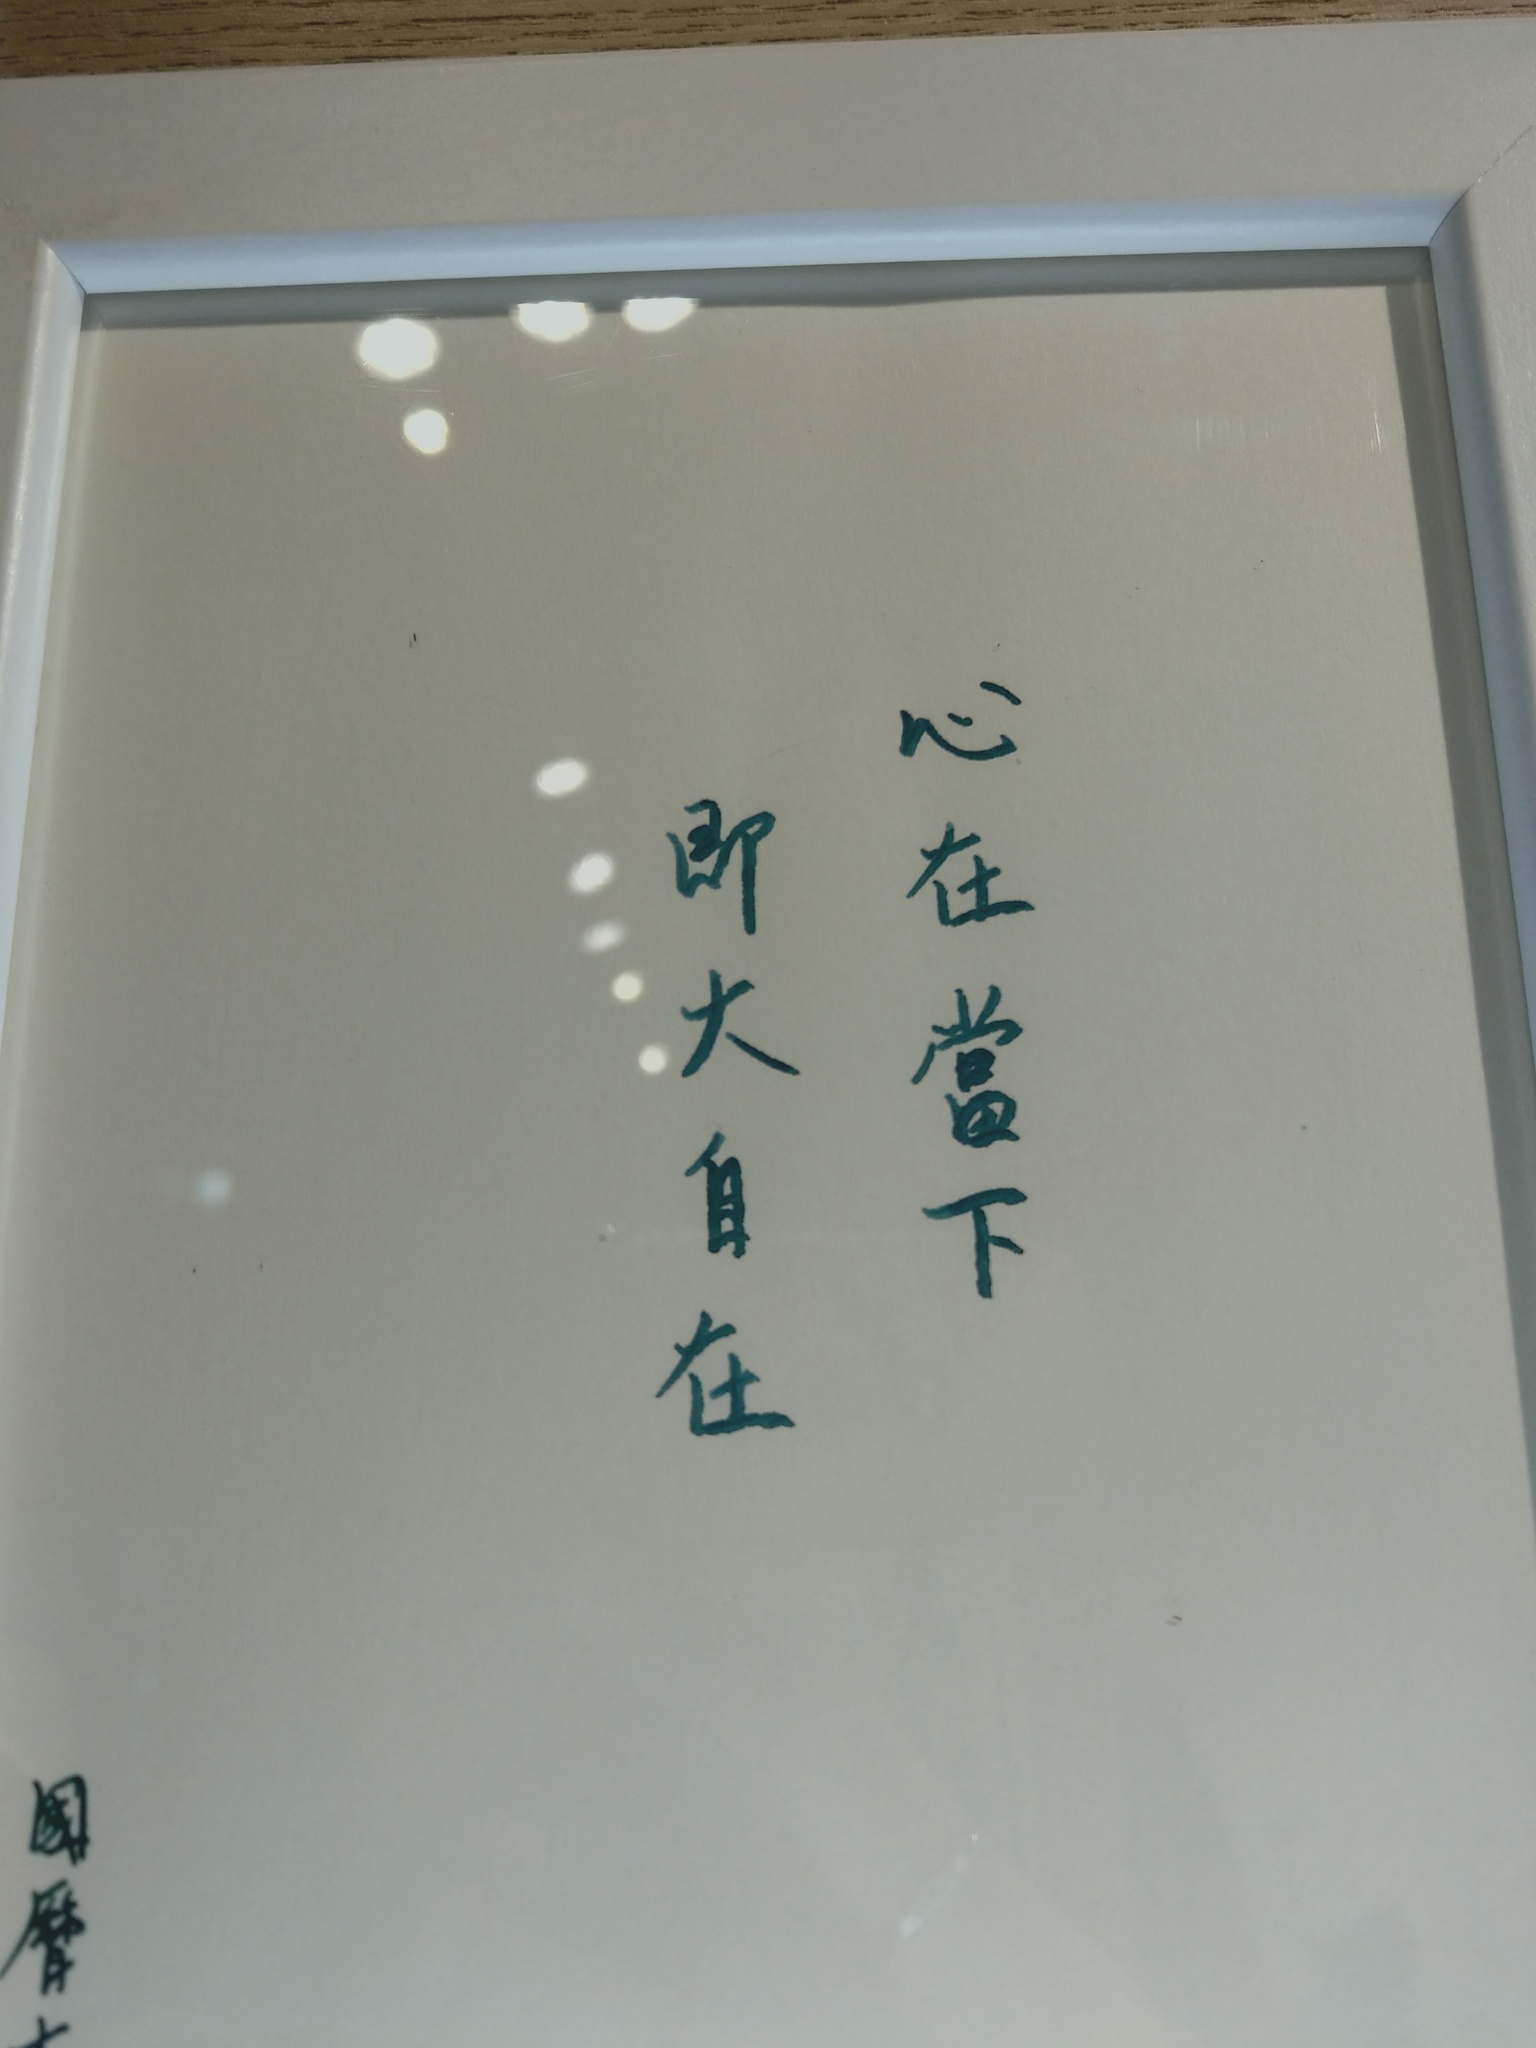 心在當下
即大自在
國曆